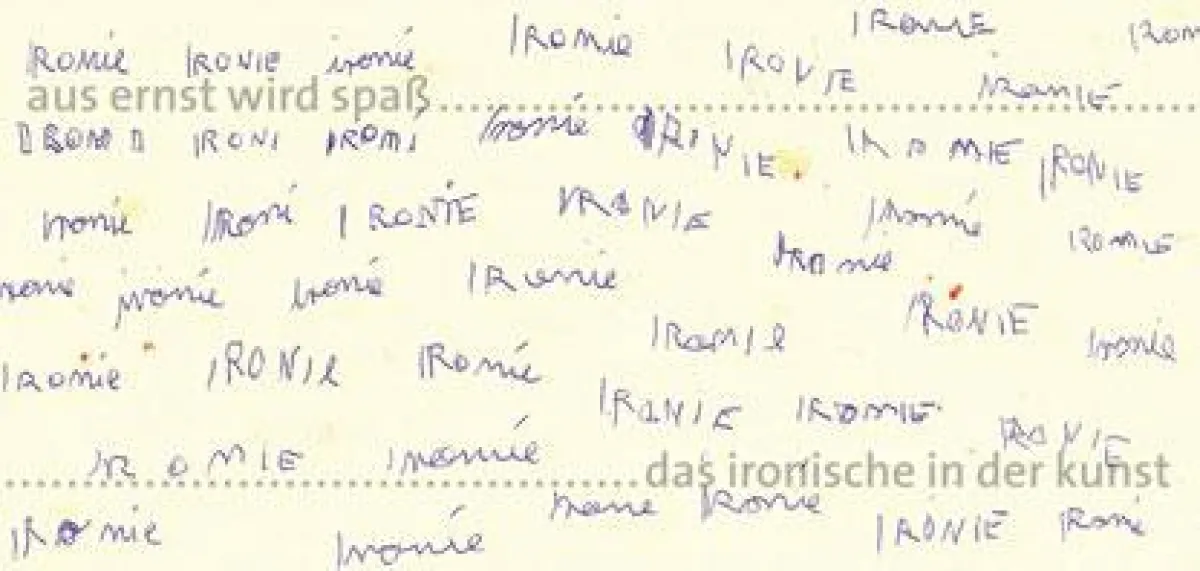 IRonie IRONIE ironie IRonie IRONIE IRONIE IRON
aus ernst wird spaß IRONIE
IRONI IRONI IRONI Ironie IRINIE IRONIE IRONIE
Ironie IRoni IRONIE IRONIE Ironie IRONIE
ronie Ironie Ironie IRonie IRonie IRONIE
IRonie IRONIE IRonie IRONIE Ironie
IRONIE IRONIE IRONIE
IRONIE Ironie
das ironische in der kunst
IRonie Ironie Ironie IRONIE IRonie